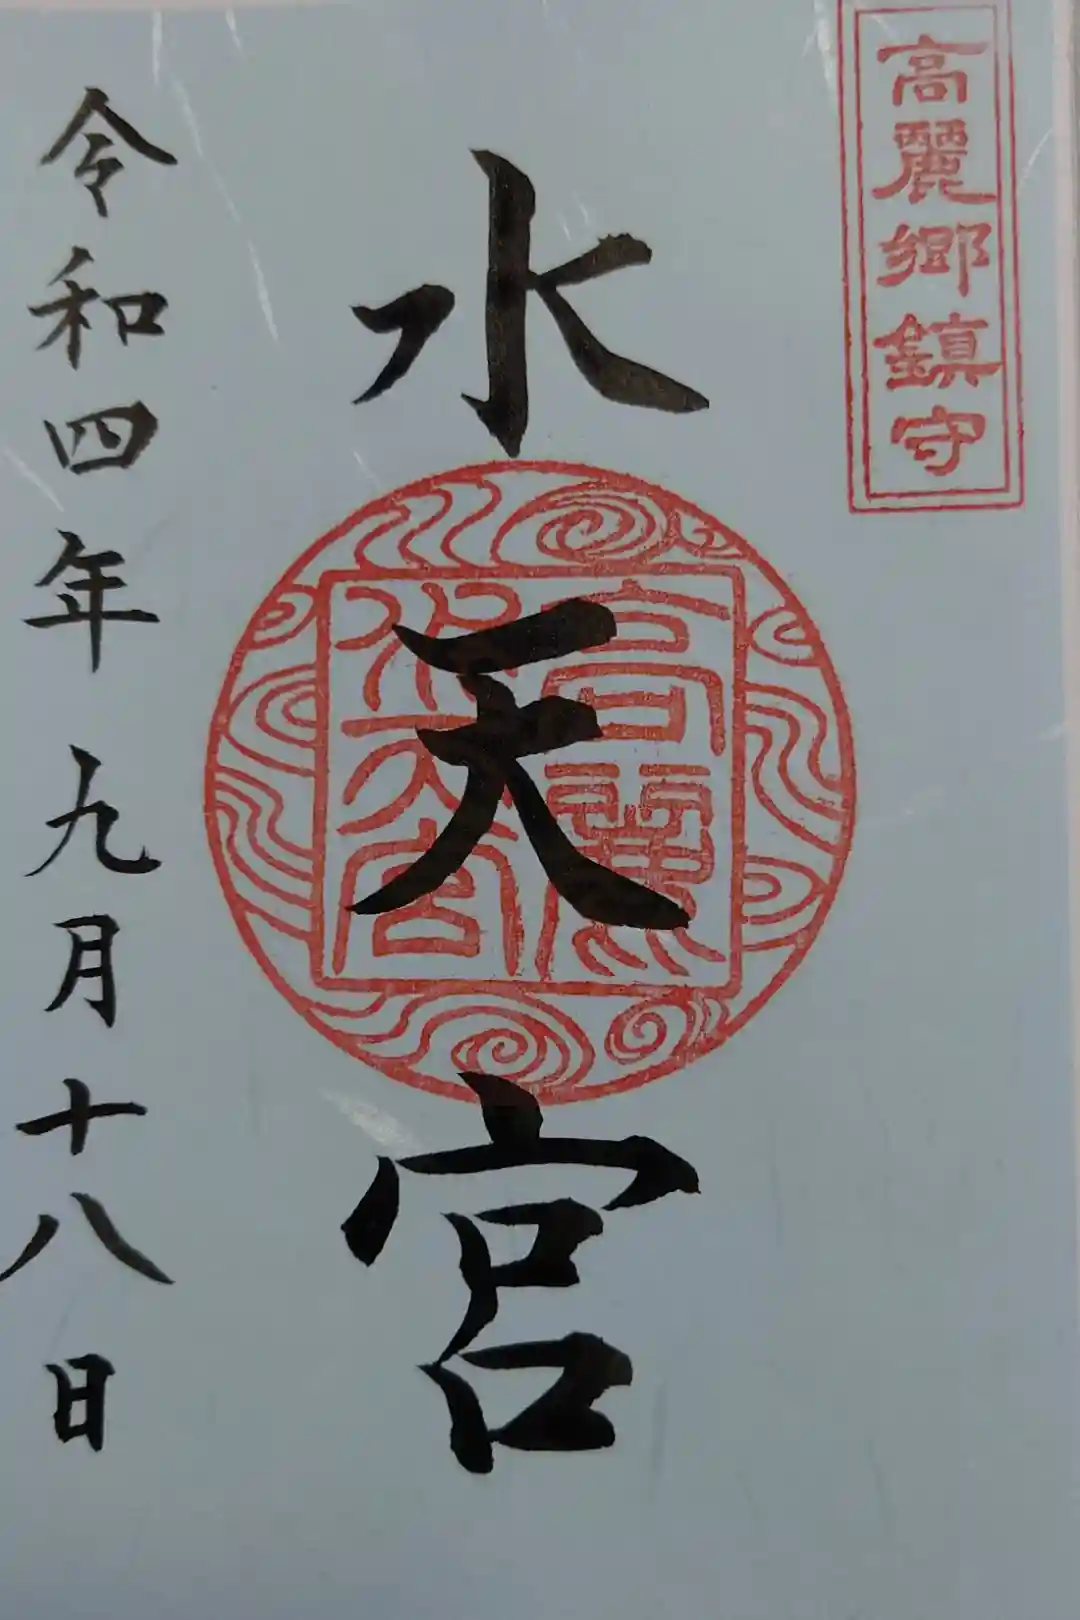 高麗郷鎮守
水天宮
高麗
水天宮
令和四年九月十八日